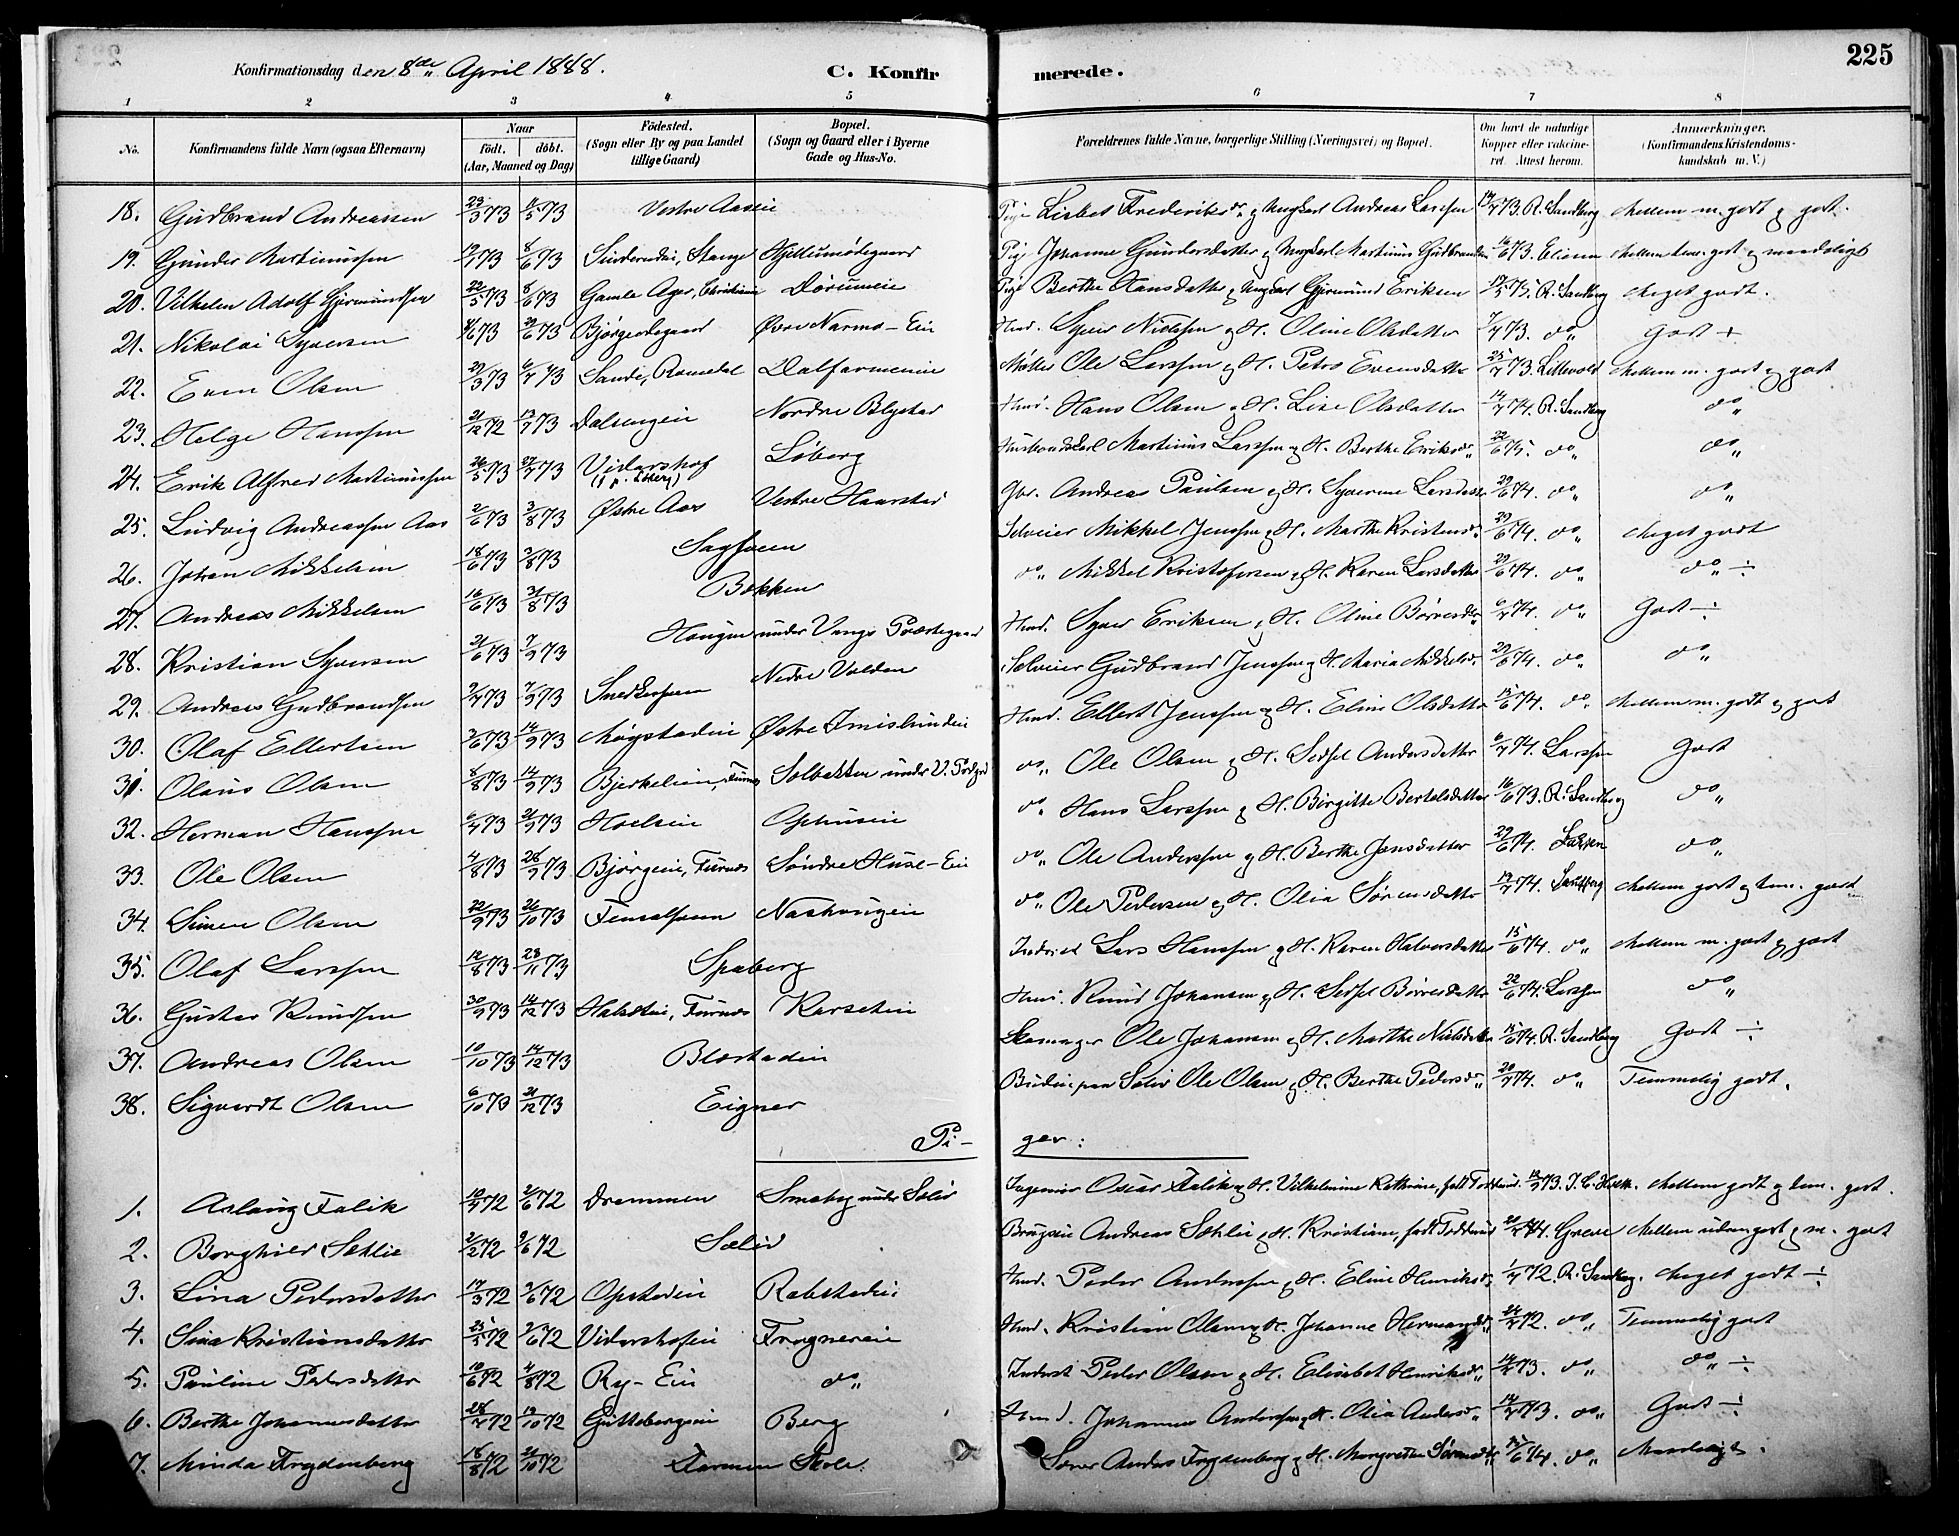 225
Konfirmationsdag den 8de April 1888. C. Konfirmerede.
1 2 3 4 5 6 7 8
No. Konfirmandens fulde Navn (ogsaa Efternavn) Naar født. døbt. (Aar, Maaned og Dag) Fødested. (Sogn eller By og paa Landet tillige Gaard) Bopæl. (Sogn og Gaard eller i Byerne Gade og Hus-No. Forældrenes fulde Navne, borgerlige Stilling (Næringsvei) og Bopæl. Om havt de naturlige Kopper eller vaccineret. Attest herom. Anmærkninger. (Konfirmandens Kristendomskundskab m. V.)
18. Gudbrand Andreassen 23/3 73 11/5 73 Vestre Aasen Pige Lisbet Frederiksdr. og Ungkarl Andreas Larssen R. Sandberg Mellem m. godt og godt.
19. Gunder Martinussen 8/6 73 Stange Pige Johanne Gundersdatter og Ungkarl Martinus Gudbrandsen 16/6 73. Mellem tem. godt og maadeligt
20. Vilhelm Adolf Gjermundsen 22/5 73 8/6 73 Gamle Ager, Christiania Pige Berthe Hansdatter og Ungkarl Gjermund Eriksen R. Sandberg Meget godt.
21. Nikolai Syversen 73 29/6 73 Bjørgedegaard Øvre Narmo-Ein Hmd. Syver Nielssen og H. Oline Olsdatter 7/7 73. do. Godt ÷
22. Even Olsen 29/3 73 6/7 73 Sande, Romedal Møller Ole Larssen og H. Petra Evensdatter 25/7 73. Lillevold Mellem m. godt og godt
23. Helge Hanssen 21/12 72 13/7 73 Dalsengein Nordre Blystad Hmd. Hans Olsen og H. Lise Olsdatter 14/7 74. R. Sandberg do.
24. Erik Alfred Martinussen 26/5 73 27/7 73 Vidarshof Løberg Husbondskarl Martinus Larssen og H. Berthe Eriksdr. 22/6 75. do. do.
25. Ludvig Andreassen Aas 2/6 73 3/8 73 Østre Aas Vestre Haarstad Gbr. Andreas Paulsen og H. Syverine Larsdatter 29/6 74. do. do.
26. Johan Mikkelsen 18/6 73 3/8 73 Sagsveen Selveier Mikkel Jenssen og H. Marthe Kristensdr. 29/6 74. do. Meget godt
27. Andreas Mikkelsen 16/6 73 31/8 73 Bakken do. Mikkel Kristofersen og H. Karen Larsdatter 29/6 74. do. do. ÷
28. Kristian Syversen 21/6 73 7/9 73 Haugen under Vangs Præstegaard Hmd. Syver Eriksen og H. Oline Børresdr. 6/7 74. do. Godt ÷
29. Andreas Gudbrandsen 9/7 73 7/9 73 Snedkersveen Nedre Volden Selveier Gudbrand Jenssen og H. Maria Mikkelsdr. 29/6 74. do. do.
30. Olaf Ellertsen 2/6 73 14/9 73 Møystadein Østre Imislundein Hmd. Ellert Jenssen og H. Eline Olsdatter 15/6 74. do. Mellem m. godt og godt
31. Olaus Olsen 8/8 73 14/9 73 Bjerkelien, Furnes Solbakken under V. Prdgrd do. Ole Olsen og H. Sidsel Andersdatter 6/7 74. Larssen Godt
32. Herman Hanssen 6/7 73 21/9 73 Hoelsein Ophusein do. Hans Larssen og H. Birgitte Bertelsdatter 16/6 73. R. Sandberg do.
33. Ole Olsen 4/8 73 28/9 73 Bjørgein, Furnes Søndre Huse-Ein do. Ole Anderssen og H. Berthe Jensdatter 29/6 74. Larssen do.
34. Simen Olsen 22/9 73 26/10 73 Finsalsveen Nashaugein do. Ole Pedersen og H. Olia Sørensdatter 74. Sandberg Mellem godt og tem. godt
35. Olaf Larssen 12/8 73 23/11 73 Spaberg Inderst Lars Hanssen og H. Karen Halvorsdatter 15/6 74. do. Mellem m. godt og godt
36. Gustav Knudsen 30/9 73 14/12 73 Furnes Hmd. Knud Johansen og H. Sidsel Børresdatter 22/6 74. Larssen do.
37. Andreas Olsen 10/10 73 14/12 73 Blæstadein Skomager Ole Johansen og H. Marthe Nielsdatter 15/6 74. R. Sandberg Godt ÷
38. Sigvardt Olsen 6/10 73 21/12 73 Eigner paa Sælid Ole Olsen og H. Berthe Pedersdr. 20/7 74. do. Temmelig godt.
Pi- ger:
1. Aslaug Falik 10/4 72 2/6 72 Drammen Smeby under Sælid Ingeniør Oscar Falik og H. Vilhelmine Kathrine, født Mellem godt og tem. godt.
2. Borghild Sæhlie 2/2 72 2/6 72 Sælid Andreas Sæhlie og H. Kristiane, født 74. Greve Mellem udm. godt og m. godt
3. Lina Pedersdatter 17/3 72 2/6 72 Opstadein Rabstadein Hmd. Peder Anderssen og H. Eline Henriksdr. 1/7 72. R. Sandberg. Meget godt ÷
4. Sina Kristiansdatter 25/5 72 72 Vidarshofein Frognereie Hmd. Kristian Olsen og H. Johanne Hermansdr. 24/7 72. do. Temmelig godt
5. Pauline Pedersdatter 10/6 72 4/8 72 Ry-Ein do. Inderst Peder Olsen og H. Elisabet Henriksdr. 73. do. do. ÷
6. Berthe Johannesdatter 28/7 72 13/10 72 Guttebergein Berg Hmd. Johannes Anderssen og H. Olia Andersdr. 73. do. Godt ÷
7. Minda Frydenberg 18/8 72 21/10 72 Farmen Skole. Anders Frydenberg og H. Margrethe Sørensdr. 15/6 74. do. Maadeligt.